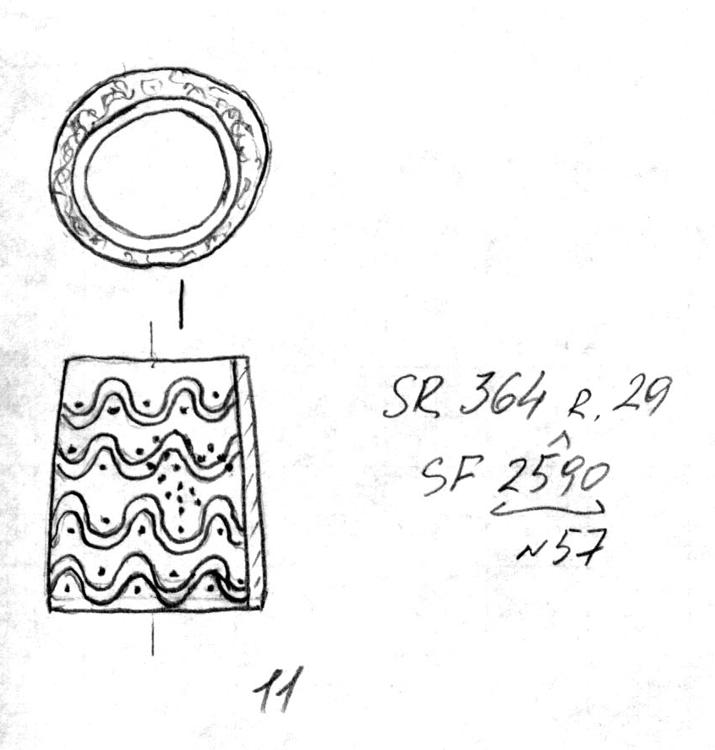 SR 364 R. 29
SF 2590
N57
11